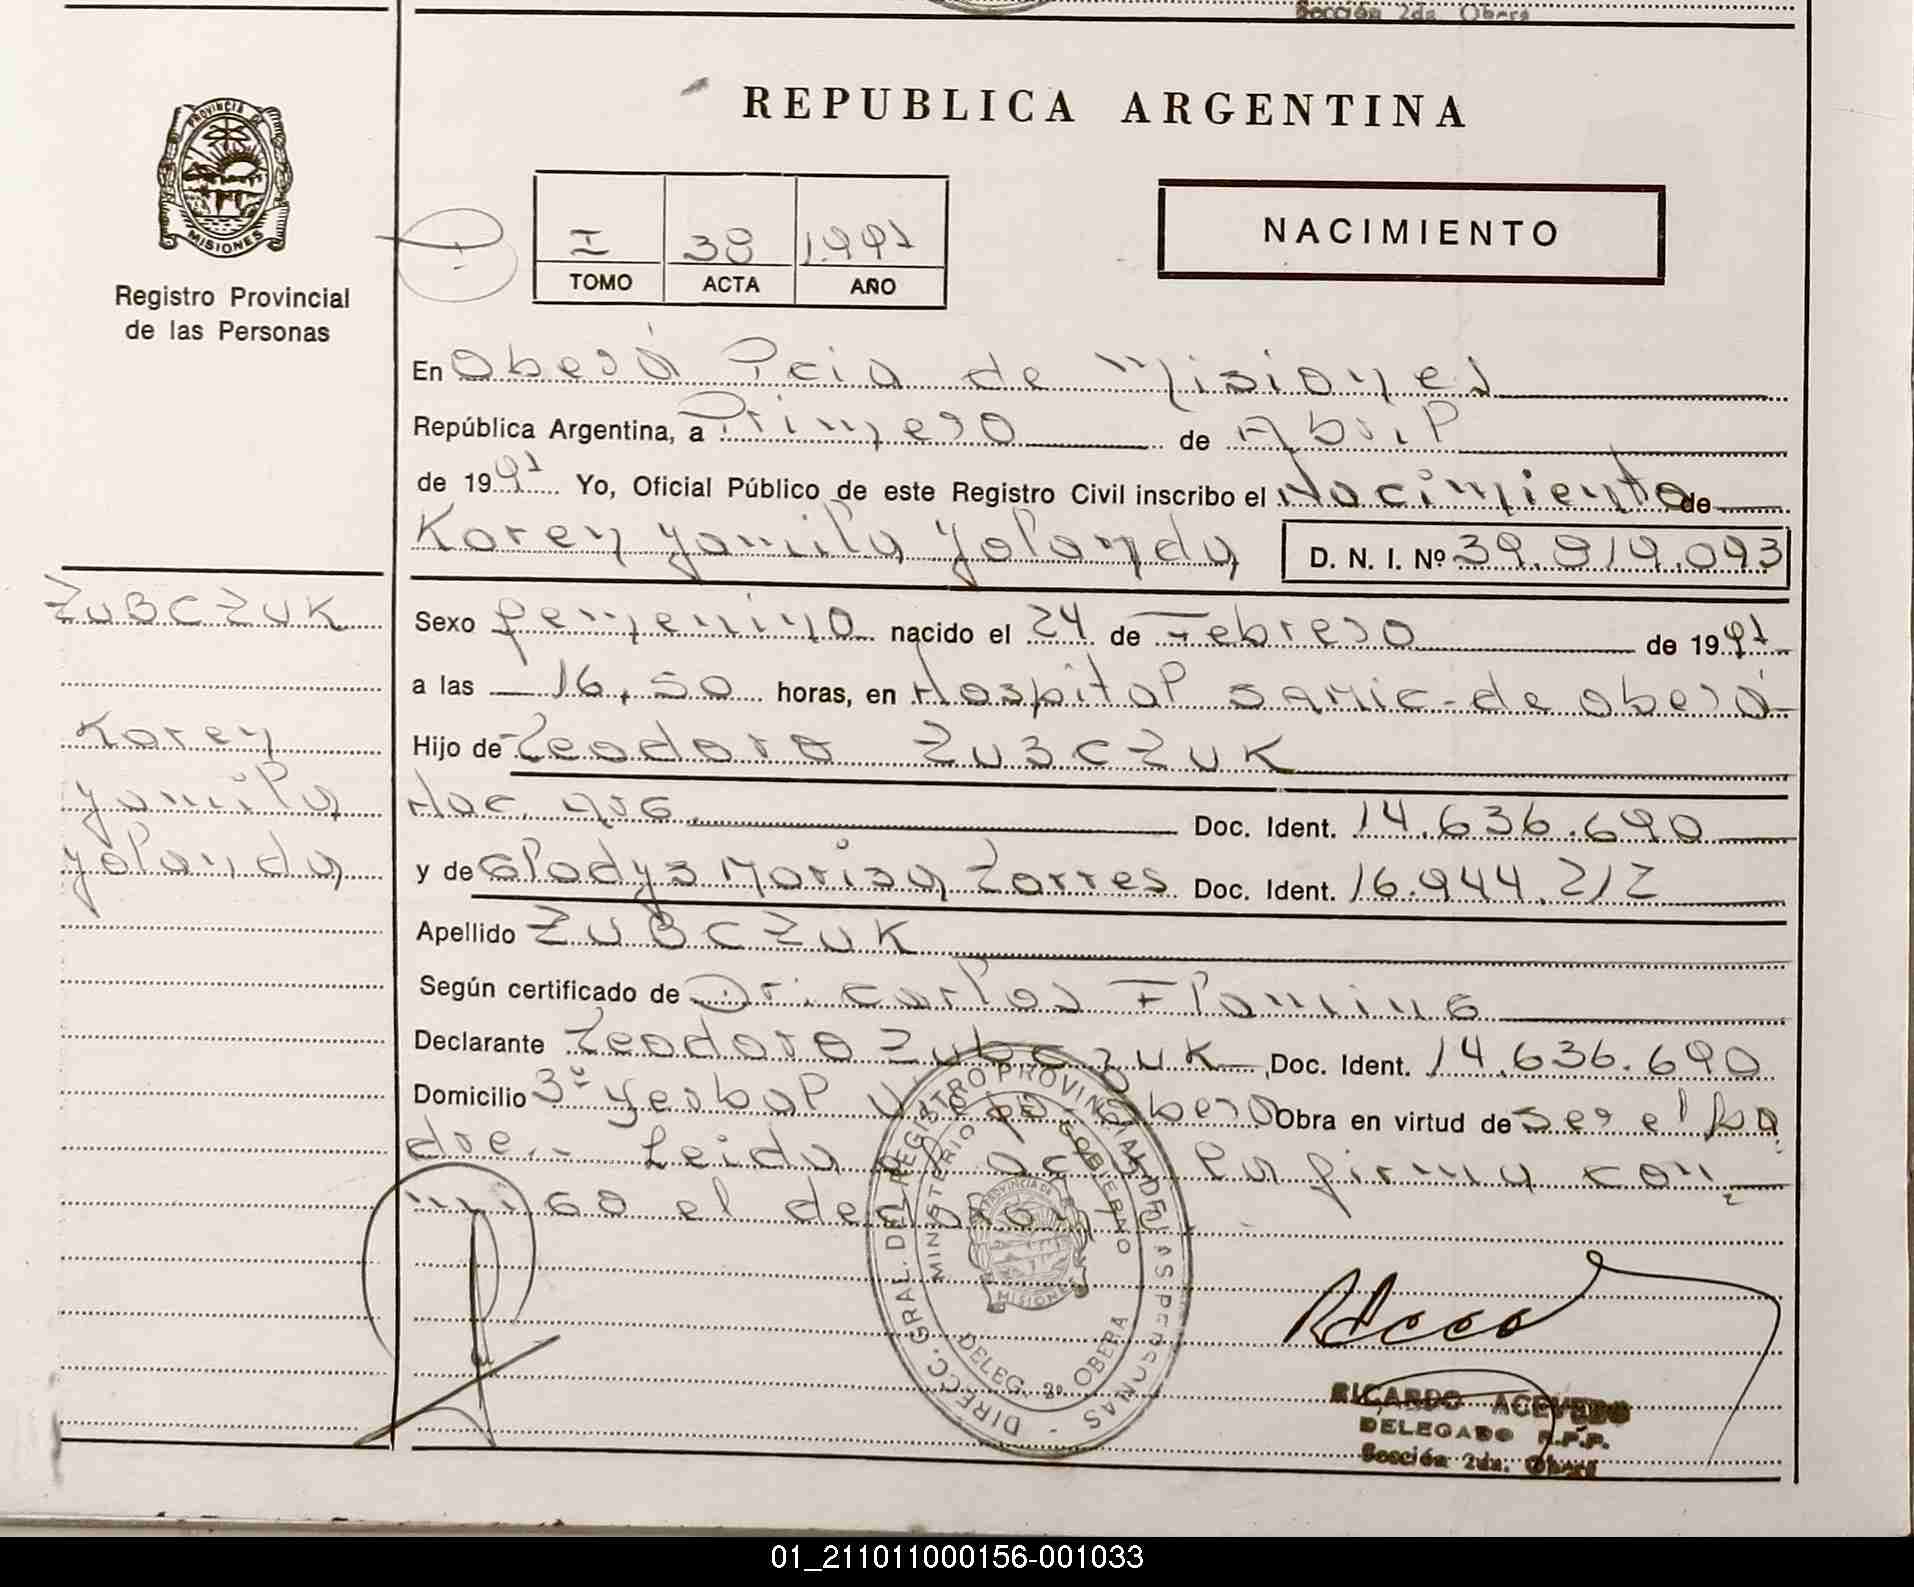 Sección 2da. Oberá
PROVINCIA DE
MISIONES
Registro Provincial
de las Personas
REPUBLICA ARGENTINA
I 38 1.991
TOMO ACTA AÑO
NACIMIENTO
En Oberá Pcia de Misiones
República Argentina, a Primero de Abril
de 1991 Yo, Oficial Público de este Registro Civil inscribo el Nacimiento de
Karen Yamila Yolanda D. N. I. Nº 39.819.093
ZUBCZUK
Karen
Yamila
Yolanda
Sexo femenino nacido el 24 de Febrero de 1991
a las 16,50 horas, en Hospital SAMIC-de Oberá
Hijo de Teodoro ZUBCZUK
Nac. Arg. Doc. Ident. 14.636.690
y de Gladys Marisa Torres Doc. Ident. 16.944.212
Apellido ZUBCZUK
Según certificado de Dr. Carlos Flaming
Declarante Teodoro Zubczuk Doc. Ident. 14.636.690
Domicilio 3º Yerbal Viejo Oberá Obra en virtud de ser el pa
dre.- Leida el acta la firma con-
migo el declarante.
DIRECC. GRAL. DEL REGISTRO PROVINCIAL DE LAS PERSONAS
MINISTERIO DE GOBIERNO
PROVINCIA DE
MISIONES
DELEG. 2º OBERA
RICARDO ACEVEDO
DELEGADO R.P.P.
Sección 2da. Oberá
01_211011000156-001033